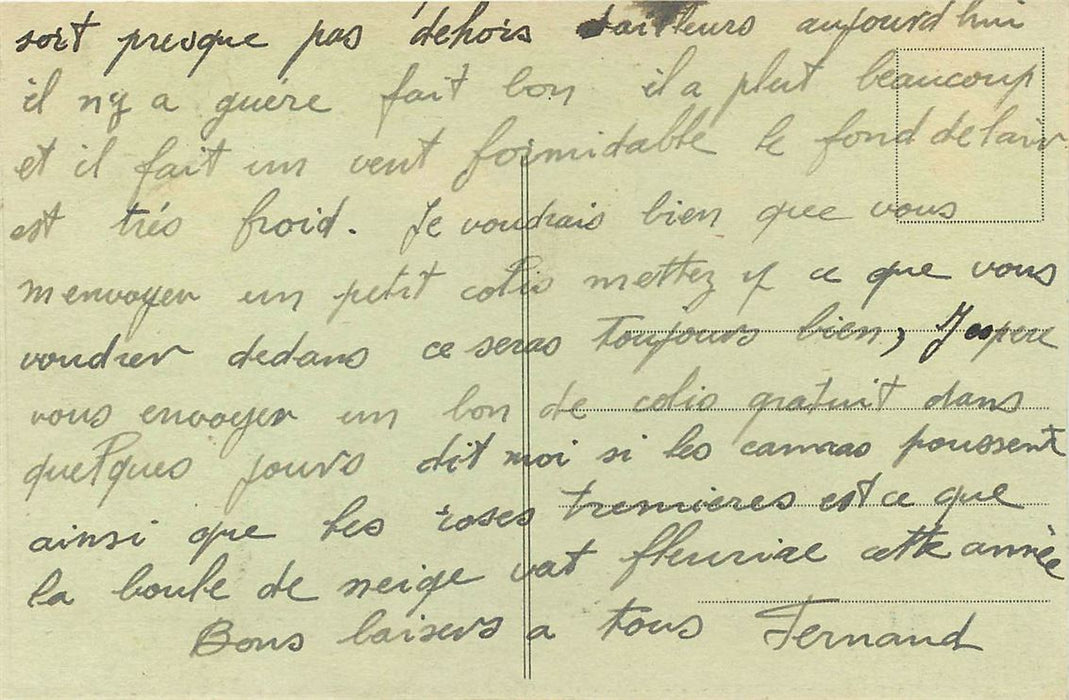 soit presque pas dehois dailleurs aujourdhui
il ny a guére fait bon il a plut beaucoup
et il fait un vent formidable le fond de lair
est trés froid. Je voudrais bien que vous
menvoyer un petit colis mettez y ce que vous
voudrer dedans ce seras toujours bien, Jespere
vous envoyer un bon de colis gratuit dans
quelques jours dit moi si les cannas poussent
ainsi que les roses tremieres est ce que
la boule de neige vat fleuriae cette année
Bons baisers a tous Fernand